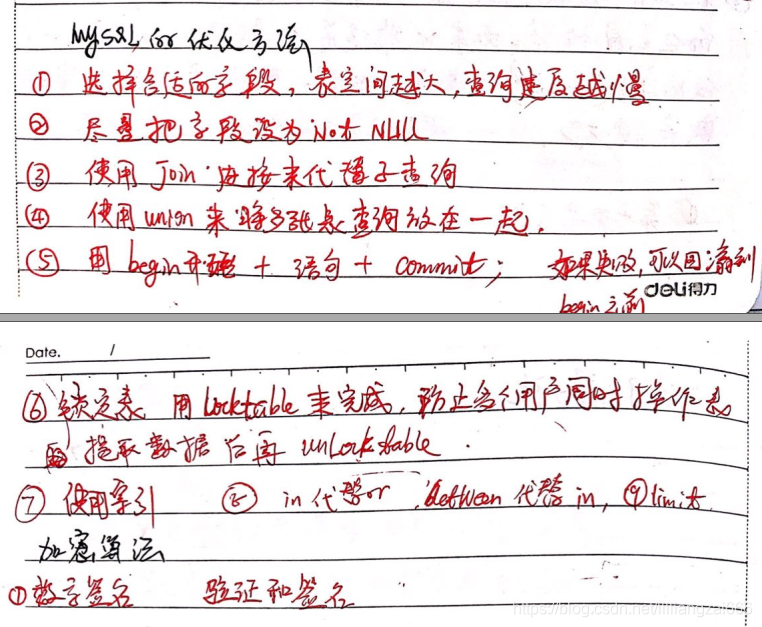 MySQL or 优化方法
① 选择合适的字段，表空间越大，查询速度越慢
② 尽量把字段设为 Not NULL
③ 使用 Join 连接来代替子查询
④ 使用 union 来将多张表查询放在一起.
⑤ 用 begin 开始 + 语句 + commit; 如果失败，可以回滚到
begin之前
deli得力
Date. /
⑥ 锁定表 用 locktable 来完成，防止多个用户同时操作表
提取数据后再 unLock table.
⑦ 使用索引 ⑧ in 代替or between 代替 in, ⑨limit
加密算法
①数字签名 验证和签名